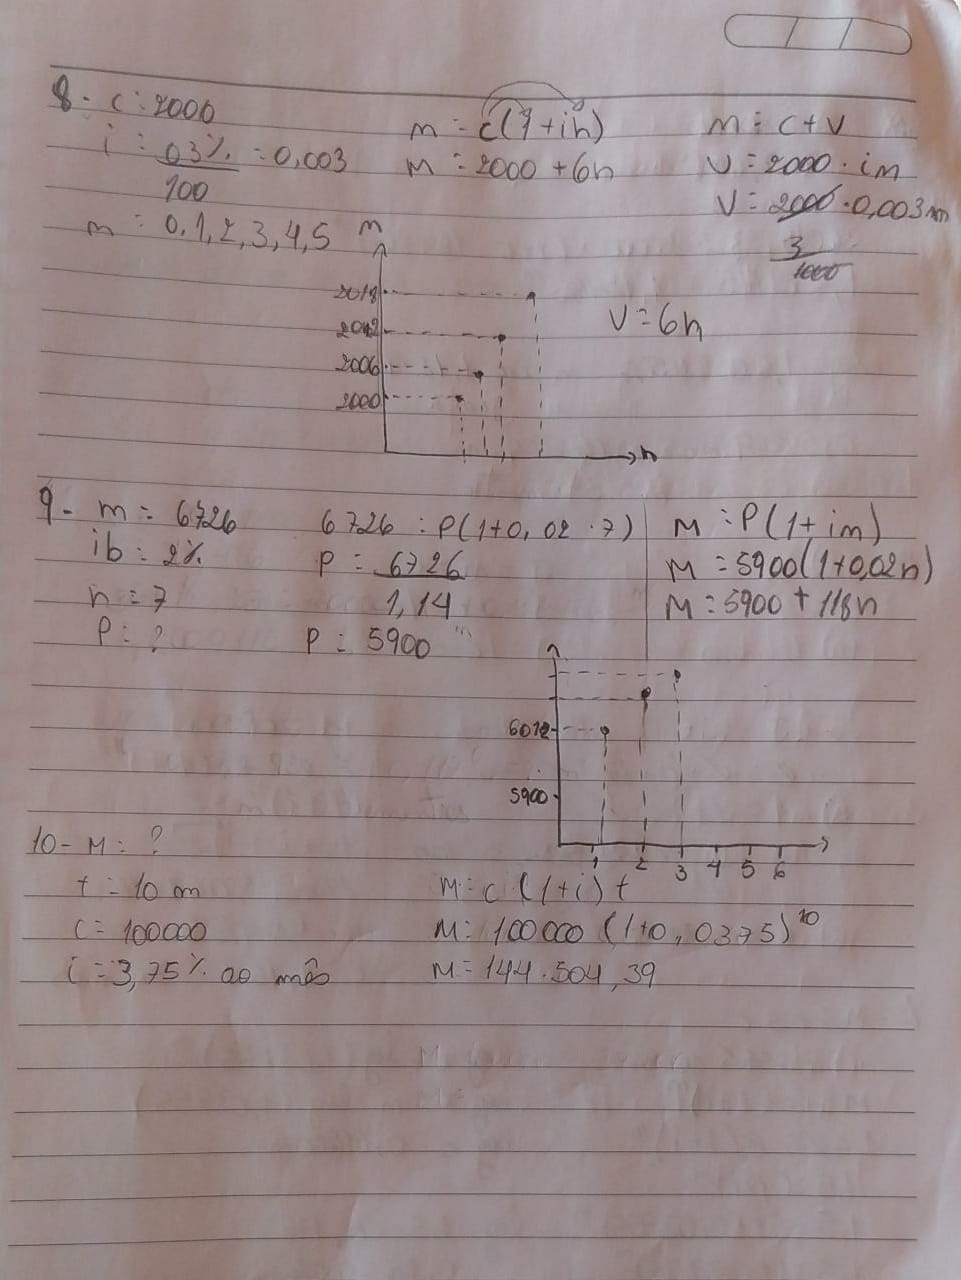 8- c: 2000
m = c(1+in)
m = c+v
i = 03% = 0,003
100
M = 2000 + 6n
V = 2000 · im
V = 2000 · 0,003m
3
1000
m = 0,1,2,3,4,5
m
2018
2012
2006
2000
n
V = 6n
9- m = 6726
ib = 2%
n = 7
P = ?
6726 = P(1+0,02·7)
P = 6726
1,14
P = 5900
M = P(1+im)
M = 5900(1+0,02n)
M = 5900 + 118n
6018
5900
1 2 3 4 5 6
10- M = ?
t = 10 m
C = 100000
i = 3,75% ao mês
M = c (1+i) t
M = 100000 (1+0,0375)¹⁰
M = 144.504,39